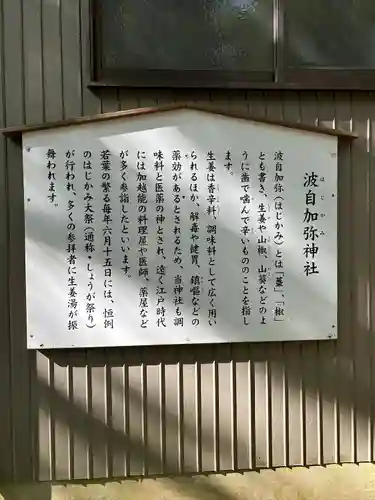 波自加弥神社
はじかみ
波自加弥(はじかみ)とは「薑」、「椒」
とも書き、生姜や山椒、山葵などのよ
うに歯で噛んで辛いもののことを指し
ます。
生姜は香辛料、調味料として広く用い
られるほか、解毒や健胃、鎮嘔などの
薬効があるとされるため、当神社も調
味料と医薬の神とされ、遠く江戸時代
には加越能の料理屋や医師、薬屋など
が多く参詣したといいます。
若葉の繁る毎年六月十五日には、恒例
のはじかみ大祭(通称・しょうが祭り)
が行われ、多くの参拝者に生姜湯が振
舞われます。